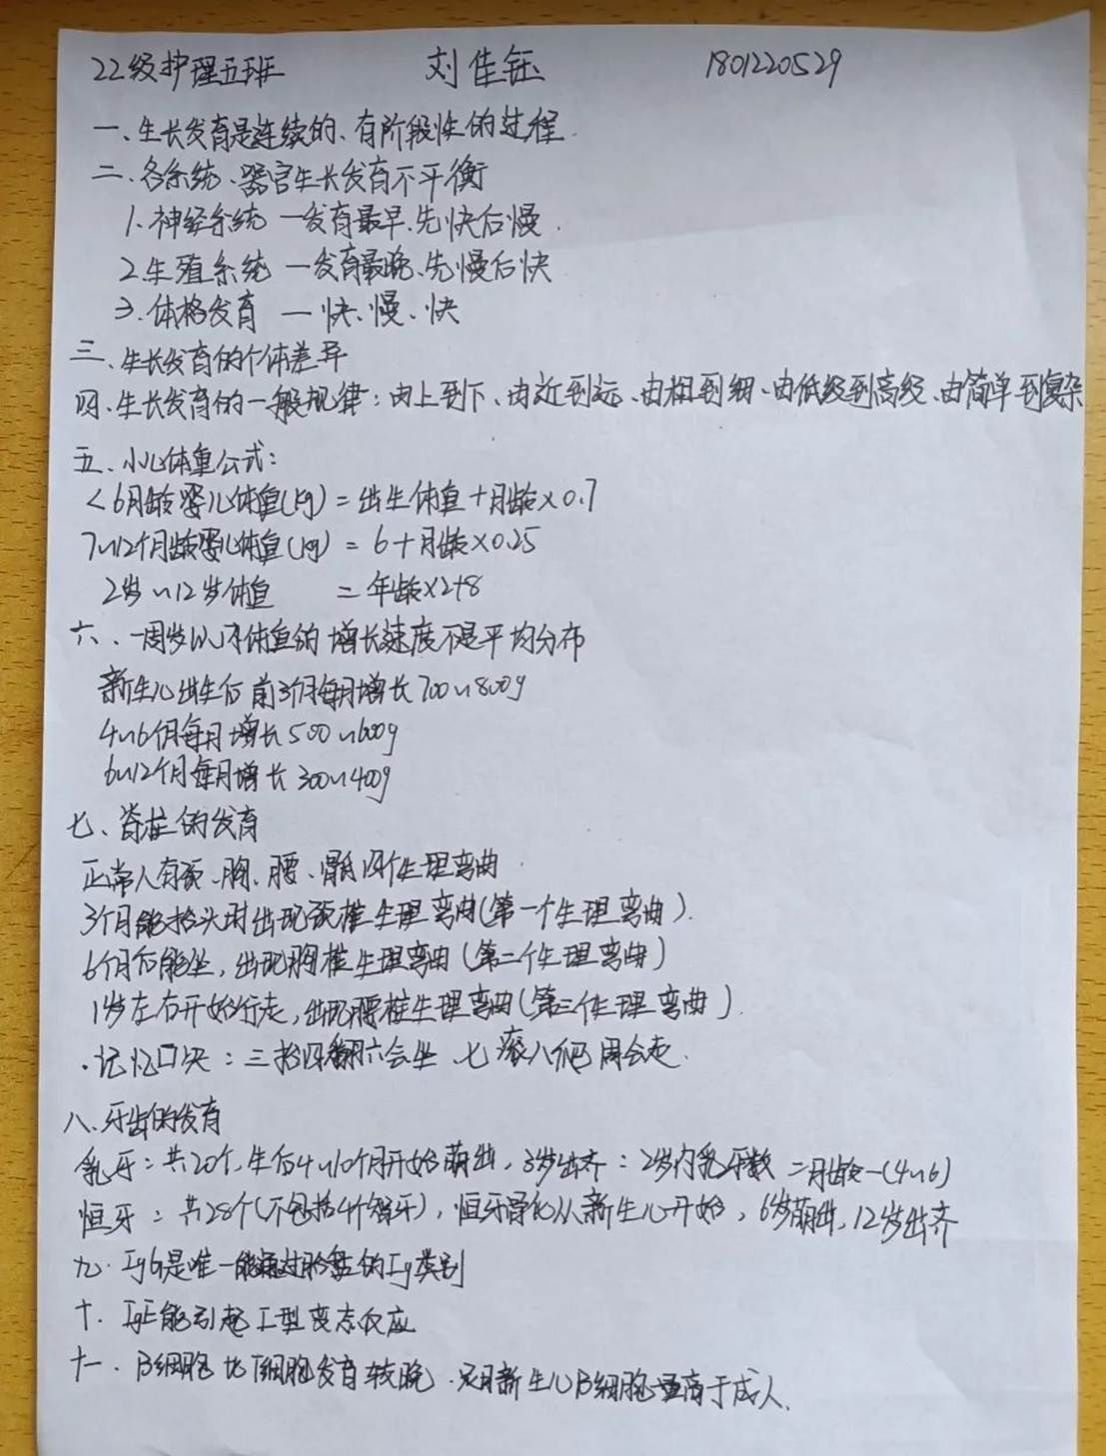 22级护理五班 刘佳钰 1801220529
一、生长发育是连续的、有阶段性的过程.
二、各系统、器官生长发育不平衡
1.神经系统 一发育最早、先快后慢.
2.生殖系统 一发育最晚、先慢后快
3.体格发育 一快、慢、快
三、生长发育的个体差异
四、生长发育的一般规律：由上到下、由近到远、由粗到细、由低级到高级、由简单到复杂
五、小儿体重公式：
<6月龄婴儿体重(kg)=出生体重+月龄×0.7
7~12个月龄婴儿体重(kg)=6+月龄×0.25
2岁~12岁体重 =年龄×2+8
六、一周岁以内体重的增长速度不是平均分布
新生儿出生后前3个月每月增长700~800g
4~6个月每月增长500~600g
6~12个月每月增长300~400g
七、脊柱的发育
正常人有颈、胸、腰、骶四个生理弯曲
3个月能抬头时出现颈椎生理弯曲(第一个生理弯曲).
6个月后能坐，出现胸椎生理弯曲(第二个生理弯曲)
1岁左右开始行走，出现腰椎生理弯曲(第三个生理弯曲).
·记忆口诀：三抬四翻六会坐、七滚八爬周会走.
八、牙齿的发育
乳牙：共20个，生后4~10个月开始萌出，3岁出齐：2岁内乳牙数=月龄-(4~6)
恒牙：共28个(不包括4个智牙)，恒牙骨化从新生儿开始，6岁萌出，12岁出齐
九、IgG是唯一能通过胎盘的Ig类别
十、IgE能引起I型变态反应
十一、B细胞比T细胞发育较晚，足月新生儿B细胞量高于成人.